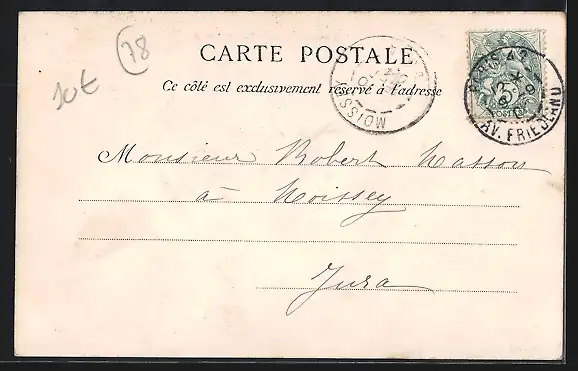 78
10€
CARTE POSTALE
Ce côté est exclusivement réservé à l'adresse
MOISSEY
PARIS 43
AV. FRIEDLAND
Monsieur Robert Masson
à Moissey
Jura